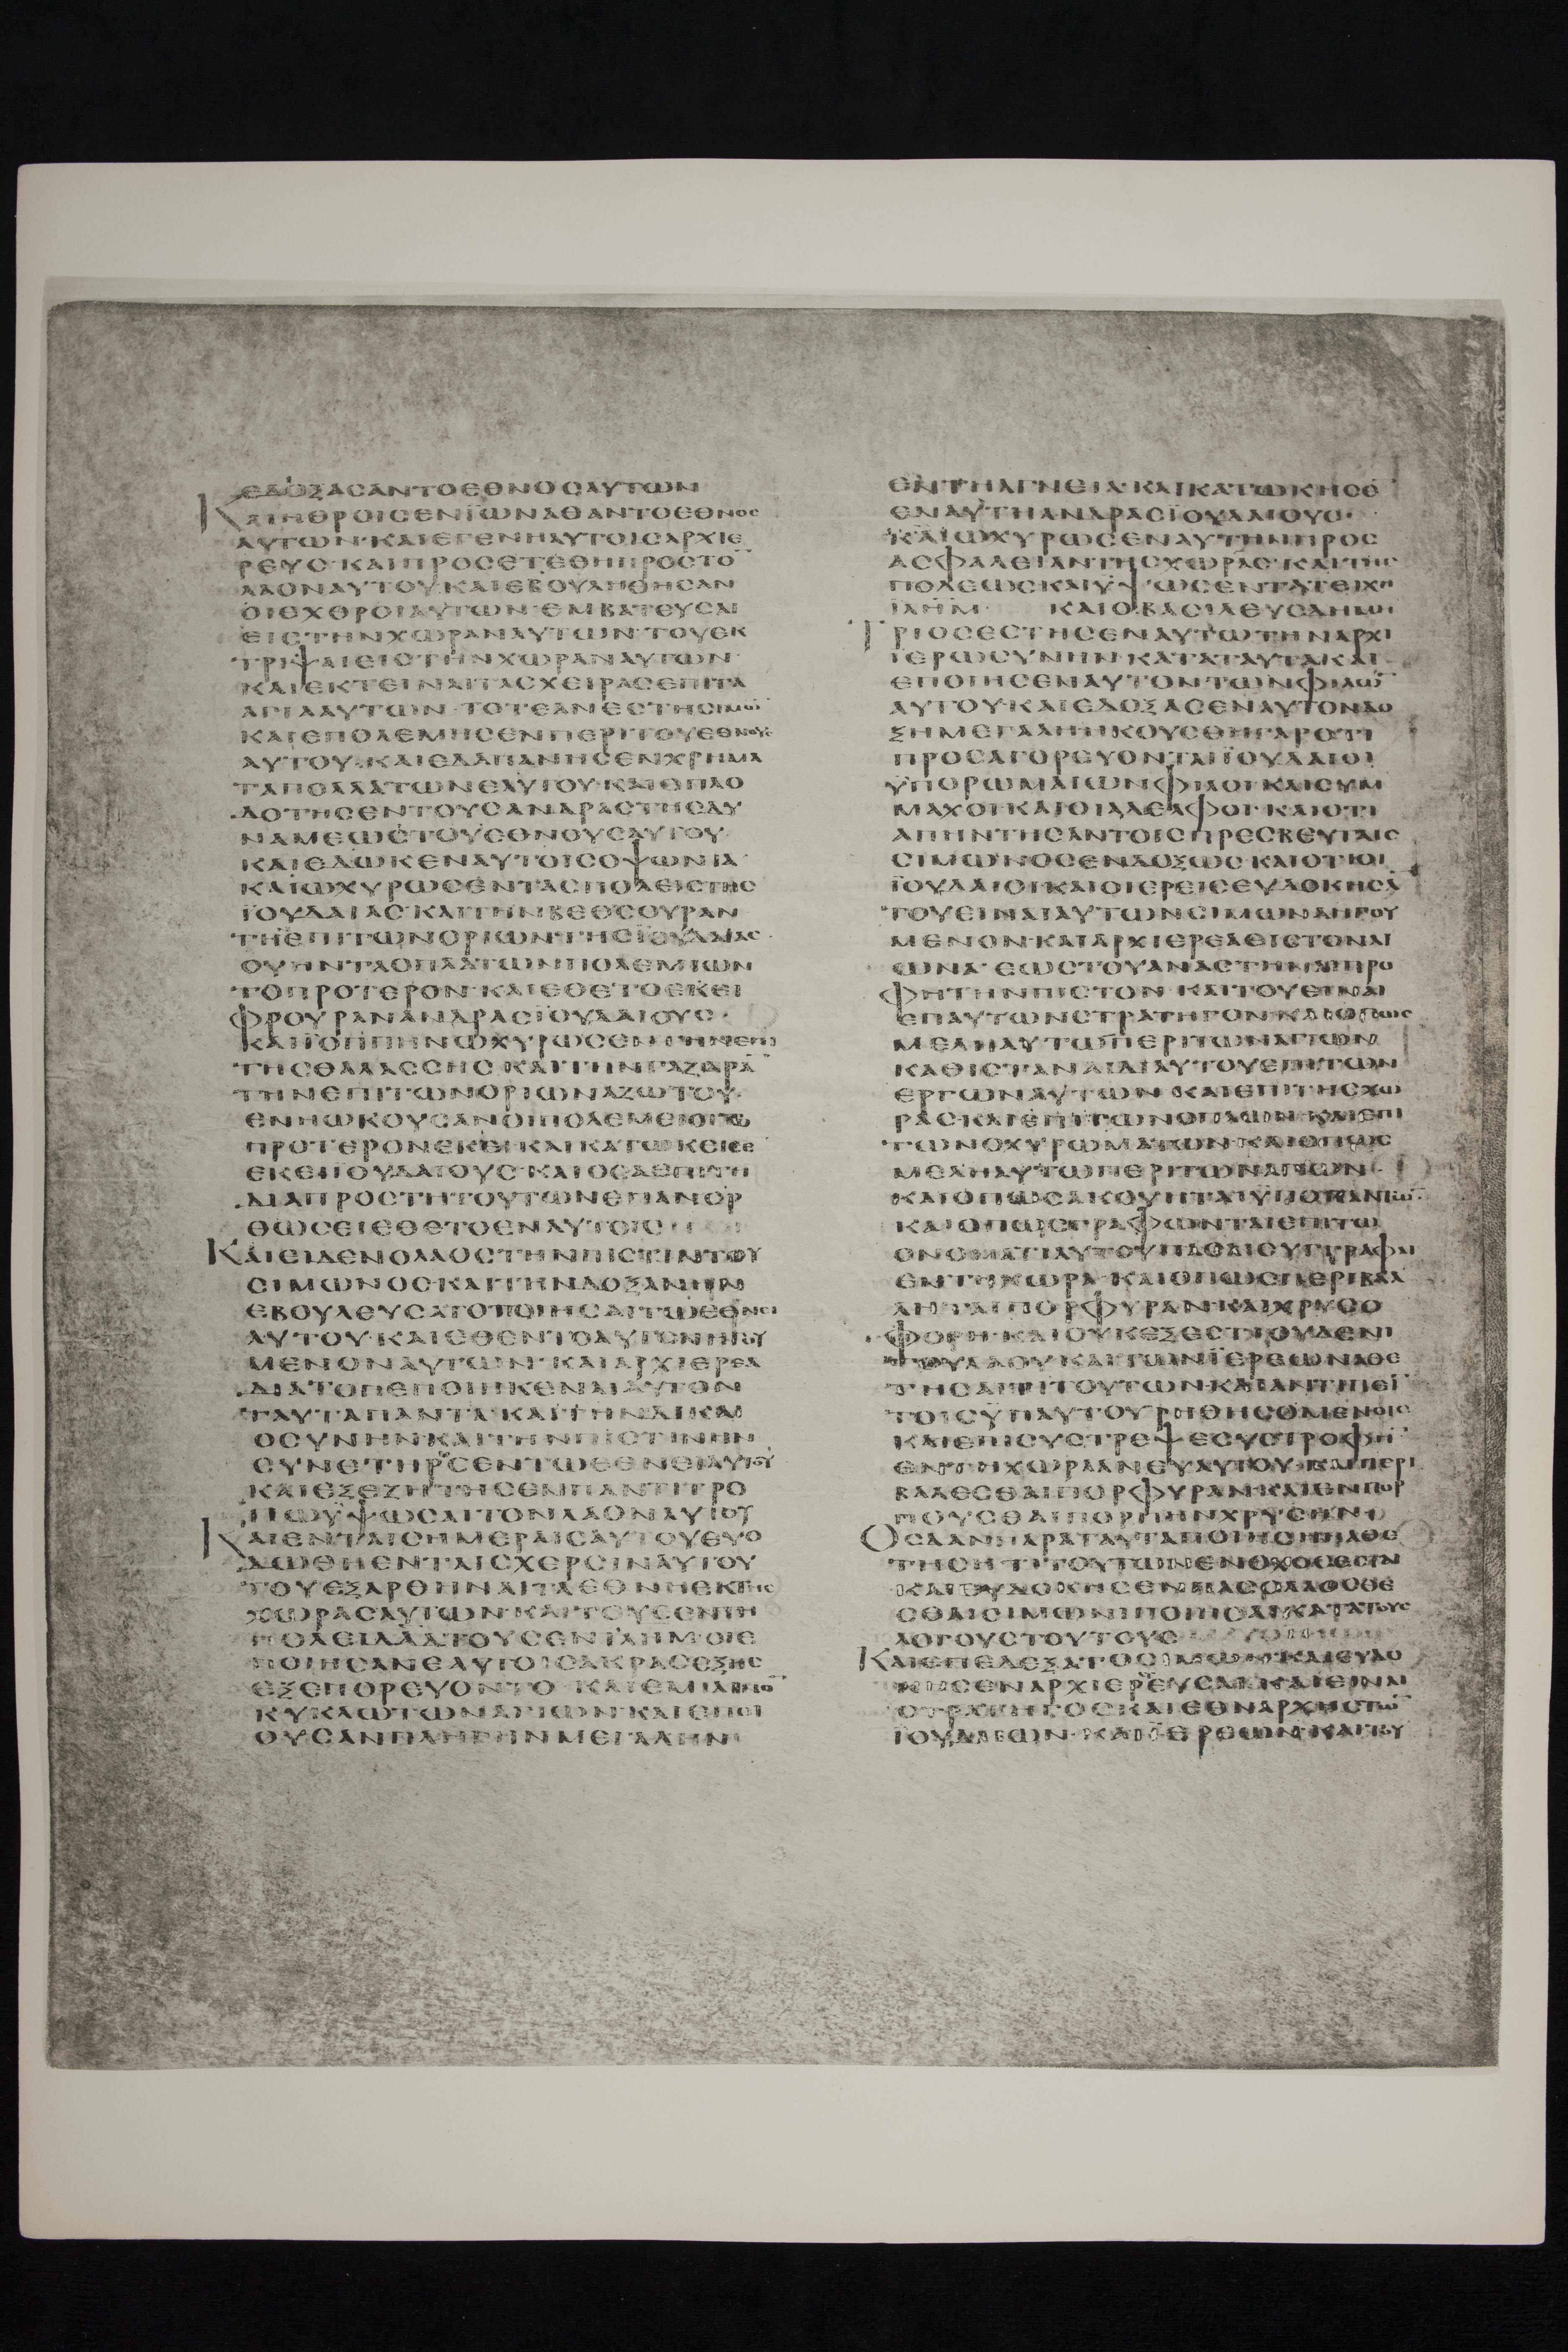 ΕΔΟΞΑΣΑΝΤΟΕΘΝΟΣΑΥΤΩΝ
ΚΑΙΗΘΡΟΙΣΕΝΪΩΝΑΘΑΝΤΟΕΘΝΟΣ
ΑΥΤΩΝ·ΚΑΙΕΓΕΝΗΑΥΤΟΙΣΑΡΧΙΕ
ΡΕΥΣ·ΚΑΙΠΡΟΣΕΤΕΘΗΠΡΟΣΤΟ̅
ΛΑΟΝΑΥΤΟΥ·ΚΑΙΕΒΟΥΛΗΘΗΣΑΝ
ΟΙΕΧΘΡΟΙΑΥΤΩΝ·ΕΜΒΑΤΕΥΣΑΙ
ΕΙΣΤΗΝΧΩΡΑΝΑΥΤΩΝ·ΤΟΥΕΚ
ΤΡΙΨΑΙΕΙΣΤΗΝΧΩΡΑΝΑΥΤΩΝ·
ΚΑΙΕΚΤΕΙΝΑΙΤΑΣΧΕΙΡΑΣΕΠΙΤΑ
ΑΓΙΑΑΥΤΩΝ·ΤΟΤΕΑΝΕΣΤΗΣΙΜΩ̅
ΚΑΙΕΠΟΛΕΜΗΣΕΝΠΕΡΙΤΟΥΕΘΝΟΥΣ
ΑΥΤΟΥ·ΚΑΙΕΔΑΠΑΝΗΣΕΝΧΡΗΜΑ
ΤΑΠΟΛΛΑΤΩΝΕΑΥΤΟΥ·ΚΑΙΟΠΛΟ
ΔΟΤΗΣΕΝΤΟΥΣΑΝΔΡΑΣΤΗΣΔΥ
ΝΑΜΕΩΣΤΟΥΕΘΝΟΥΣΑΥΤΟΥ·
ΚΑΙΕΔΩΚΕΝΑΥΤΟΙΣΟΨΩΝΙΑ·
ΚΑΙΩΧΥΡΩΣΕΝΤΑΣΠΟΛΕΙΣΤΗΣ
ΪΟΥΔΑΙΑΣ·ΚΑΙΤΗΝΒΕΘΣΟΥΡΑΝ
ΤΗΕΠΙΤΩΝΟΡΙΩΝΤΗΣΪΟΥΔΑΙΑΣ·
ΟΥΗΝΤΑΟΠΛΑΤΩΝΠΟΛΕΜΙΩΝ
ΤΟΠΡΟΤΕΡΟΝ·ΚΑΙΕΘΕΤΟΕΚΕΙ
ΦΡΟΥΡΑΝΑΝΔΡΑΣΪΟΥΔΑΙΟΥΣ·
ΚΑΙΪΟΠΠΗΝΩΧΥΡΩΣΕΝΤΗΝΕΠΙ
ΤΗΣΘΑΛΑΣΣΗΣ·ΚΑΙΤΗΝΓΑΖΑΡΑ̅
ΤΗΝΕΠΙΤΩΝΟΡΙΩΝΑΖΩΤΟΥ·
ΕΝΗΩΚΟΥΣΑΝΟΙΠΟΛΕΜΕΙΟΙΤΟ
ΠΡΟΤΕΡΟΝΕΚΕΙ·ΚΑΙΚΑΤΩΚΕΙΣΕ
ΕΚΕΙΪΟΥΔΑΙΟΥΣ·ΚΑΙΟΣΑΕΠΙΤΗ
ΔΙΑΠΡΟΣΤΗΤΟΥΤΩΝΕΠΑΝΟΡ
ΘΩΣΕΙΕΘΕΤΟΕΝΑΥΤΟΙΣ
ΚΑΙΕΙΔΕΝΟΛΑΟΣΤΗΝΠΙΣΤΙΝΤΟΥ
ΣΙΜΩΝΟΣΚΑΙΤΗΝΔΟΞΑΝΗΝ
ΕΒΟΥΛΕΥΣΑΤΟΠΟΙΗΣΑΙΤΩΕΘΝΕΙ
ΑΥΤΟΥ·ΚΑΙΕΘΕΝΤΟΑΥΤΟΝΗΓΟΥ
ΜΕΝΟΝΑΥΤΩΝ·ΚΑΙΑΡΧΙΕΡΕΑ
ΔΙΑΤΟΠΕΠΟΙΗΚΕΝΑΙΑΥΤΟΝ
ΤΑΥΤΑΠΑΝΤΑ·ΚΑΙΤΗΝΔΙΚΑΙ
ΟΣΥΝΗΝ·ΚΑΙΤΗΝΠΙΣΤΙΝΗΝ
ΣΥΝΕΤΗΡΗΣΕΝΤΩΕΘΝΕΙΑΥΤΟΥ
ΚΑΙΕΞΕΖΗΤΗΣΕΝΠΑΝΤΙΤΡΟ
ΠΩΫΨΩΣΑΙΤΟΝΛΑΟΝΑΥΤΟΥ
ΚΑΙΕΝΤΑΙΣΗΜΕΡΑΙΣΑΥΤΟΥΕΥΟ
ΔΩΘΗΕΝΤΑΙΣΧΕΡΣΙΝΑΥΤΟΥ
ΤΟΥΕΞΑΡΘΗΝΑΙΤΑΕΘΝΗΕΚΤΗΣ
ΧΩΡΑΣΑΥΤΩΝ·ΚΑΙΤΟΥΣΕΝΤΗ
ΠΟΛΕΙΔΑΔΤΟΥΣΕΝΪΛΗΜ·ΟΙΕ
ΠΟΙΗΣΑΝΕΑΥΤΟΙΣΑΚΡΑΣΕΞΗΣ
ΕΞΕΠΟΡΕΥΟΝΤΟ·ΚΑΙΕΜΙΑΙΝΟ̅
ΚΥΚΛΩΤΩΝΑΓΙΩΝ·ΚΑΙΕΠΟΙ
ΟΥΣΑΝΠΛΗΓΗΝΜΕΓΑΛΗΝ
ΕΝΤΗΑΓΝΕΙΑ·ΚΑΙΚΑΤΩΚΗΣΕ̅
ΕΝΑΥΤΗΑΝΔΡΑΣΪΟΥΔΑΙΟΥΣ·
ΚΑΙΩΧΥΡΩΣΕΝΑΥΤΗΝΠΡΟΣ
ΑΣΦΑΛΕΙΑΝΤΗΣΧΩΡΑΣ·ΚΑΙΤΗΣ
ΠΟΛΕΩΣΚΑΙΫΨΩΣΕΝΤΑΤΕΙΧΗ
ΪΛΗΜ· ΚΑΙΟΒΑΣΙΛΕΥΣΔΗΜΗ
ΤΡΙΟΣΕΣΤΗΣΕΝΑΥΤΩΤΗΝΑΡΧΙ
ΪΕΡΩΣΥΝΗΝ·ΚΑΤΑΤΑΥΤΑΚΑΙ
ΕΠΟΙΗΣΕΝΑΥΤΟΝΤΩΝΦΙΛΩ̅
ΑΥΤΟΥ·ΚΑΙΕΔΟΞΑΣΕΝΑΥΤΟΝΔΟ
ΞΗΜΕΓΑΛΗΗΚΟΥΣΘΗΓΑΡΟΤΙ
ΠΡΟΣΑΓΟΡΕΥΟΝΤΑΙΪΟΥΔΑΙΟΙ
ΫΠΟΡΩΜΑΙΩΝΦΙΛΟΙΚΑΙΣΥΜ
ΜΑΧΟΙ·ΚΑΙΟΙΑΔΕΛΦΟΙ·ΚΑΙΟΤΙ
ΑΠΗΝΤΗΣΑΝΤΟΙΣΠΡΕΣΒΕΥΤΑΙΣ
ΣΙΜΩΝΟΣΕΝΔΟΞΩΣ·ΚΑΙΟΤΙΟΙ
ΪΟΥΔΑΙΟΙΚΑΙΟΙΕΡΕΙΣΕΥΔΟΚΗΣΑ̅
ΤΟΥΕΙΝΑΙΑΥΤΩΝΣΙΜΩΝΑΗΓΟΥ
ΜΕΝΟΝ·ΚΑΙΑΡΧΙΕΡΕΑΕΙΣΤΟΝΑΙ
ΩΝΑ·ΕΩΣΤΟΥΑΝΑΣΤΗΝΑΙΠΡΟ
ΦΗΤΗΝΠΙΣΤΟΝ·ΚΑΙΤΟΥΕΙΝΑΙ
ΕΠΑΥΤΩΝΣΤΡΑΤΗΓΟΝ·ΚΑΙΟΠΩΣ
ΜΕΛΗΑΥΤΩΠΕΡΙΤΩΝΑΓΙΩΝ
ΚΑΘΙΣΤΑΝΑΙΔΙΑΥΤΟΥΕΠΙΤΩΝ
ΕΡΓΩΝΑΥΤΩΝ·ΚΑΙΕΠΙΤΗΣΧΩ
ΡΑΣ·ΚΑΙΕΠΙΤΩΝΟΠΛΩΝ·ΚΑΙΕΠΙ
ΤΩΝΟΧΥΡΩΜΑΤΩΝ·ΚΑΙΟΠΩΣ
ΜΕΛΗΑΥΤΩΠΕΡΙΤΩΝΑΓΙΩΝ·
ΚΑΙΟΠΩΣΑΚΟΥΗΤΑΙΫΠΟΠΑΝΤΩ̅·
ΚΑΙΟΠΩΣΓΡΑΦΩΝΤΑΙΕΠΙΤΩ
ΟΝΟΜΑΤΙΑΥΤΟΥΠΑΣΑΙΣΥΓΓΡΑΦΑΙ
ΕΝΤΗΧΩΡΑ·ΚΑΙΟΠΩΣΠΕΡΙΒΑΛ
ΛΗΤΑΙΠΟΡΦΥΡΑΝ·ΚΑΙΧΡΥΣΟ
ΦΟΡΗ·ΚΑΙΟΥΚΕΞΕΣΤΙΟΥΔΕΝΙ
ΤΟΥΛΑΟΥΚΑΙΤΩΝΪΕΡΕΩΝΑΘΕ
ΤΗΣΑΙΤΙΤΟΥΤΩΝ·ΚΑΙΑΝΤΙΠΕΙ̅
ΤΟΙΣΫΠΑΥΤΟΥΡΗΘΗΣΟΜΕΝΟΙΣ
ΚΑΙΕΠΙΣΥΣΤΡΕΨΕΣΥΣΤΡΟΦΗ̅
ΕΝΤΗΧΩΡΑΑΝΕΥΑΥΤΟΥ·ΚΑΙΠΕΡΙ
ΒΑΛΕΣΘΑΙΠΟΡΦΥΡΑΝ·ΚΑΙΕΝΠΟΡ
ΠΟΥΣΘΑΙΠΟΡΠΗΝΧΡΥΣΗΝ·
ΟΣΑΝΠΑΡΑΤΑΥΤΑΠΟΙΗΣΗΗΑΘΕ
ΤΗΣΗΤΙΤΟΥΤΩΝΕΝΟΧΟΣΕΣΤΑΙ
ΚΑΙΕΥΔΟΚΗΣΕΝΠΑΣΟΛΑΟΣΘΕ
ΣΘΑΙΣΙΜΩΝΙΠΟΙΗΣΑΙΚΑΤΑΤΟΥΣ
ΛΟΓΟΥΣΤΟΥΤΟΥΣ
ΚΑΙΕΠΕΔΕΞΑΤΟΣΙΜΩΝ·ΚΑΙΕΥΔΟ
ΚΗΣΕΝΑΡΧΙΕΡΕΥΣΑΙ·ΚΑΙΕΙΝΑΙ
ΣΤΡΑΤΗΓΟΣΚΑΙΕΘΝΑΡΧΗΣΤΩ̅
ΪΟΥΔΑΙΩΝ·ΚΑΙΪΕΡΕΩΝ·ΚΑΙΤΟΥ